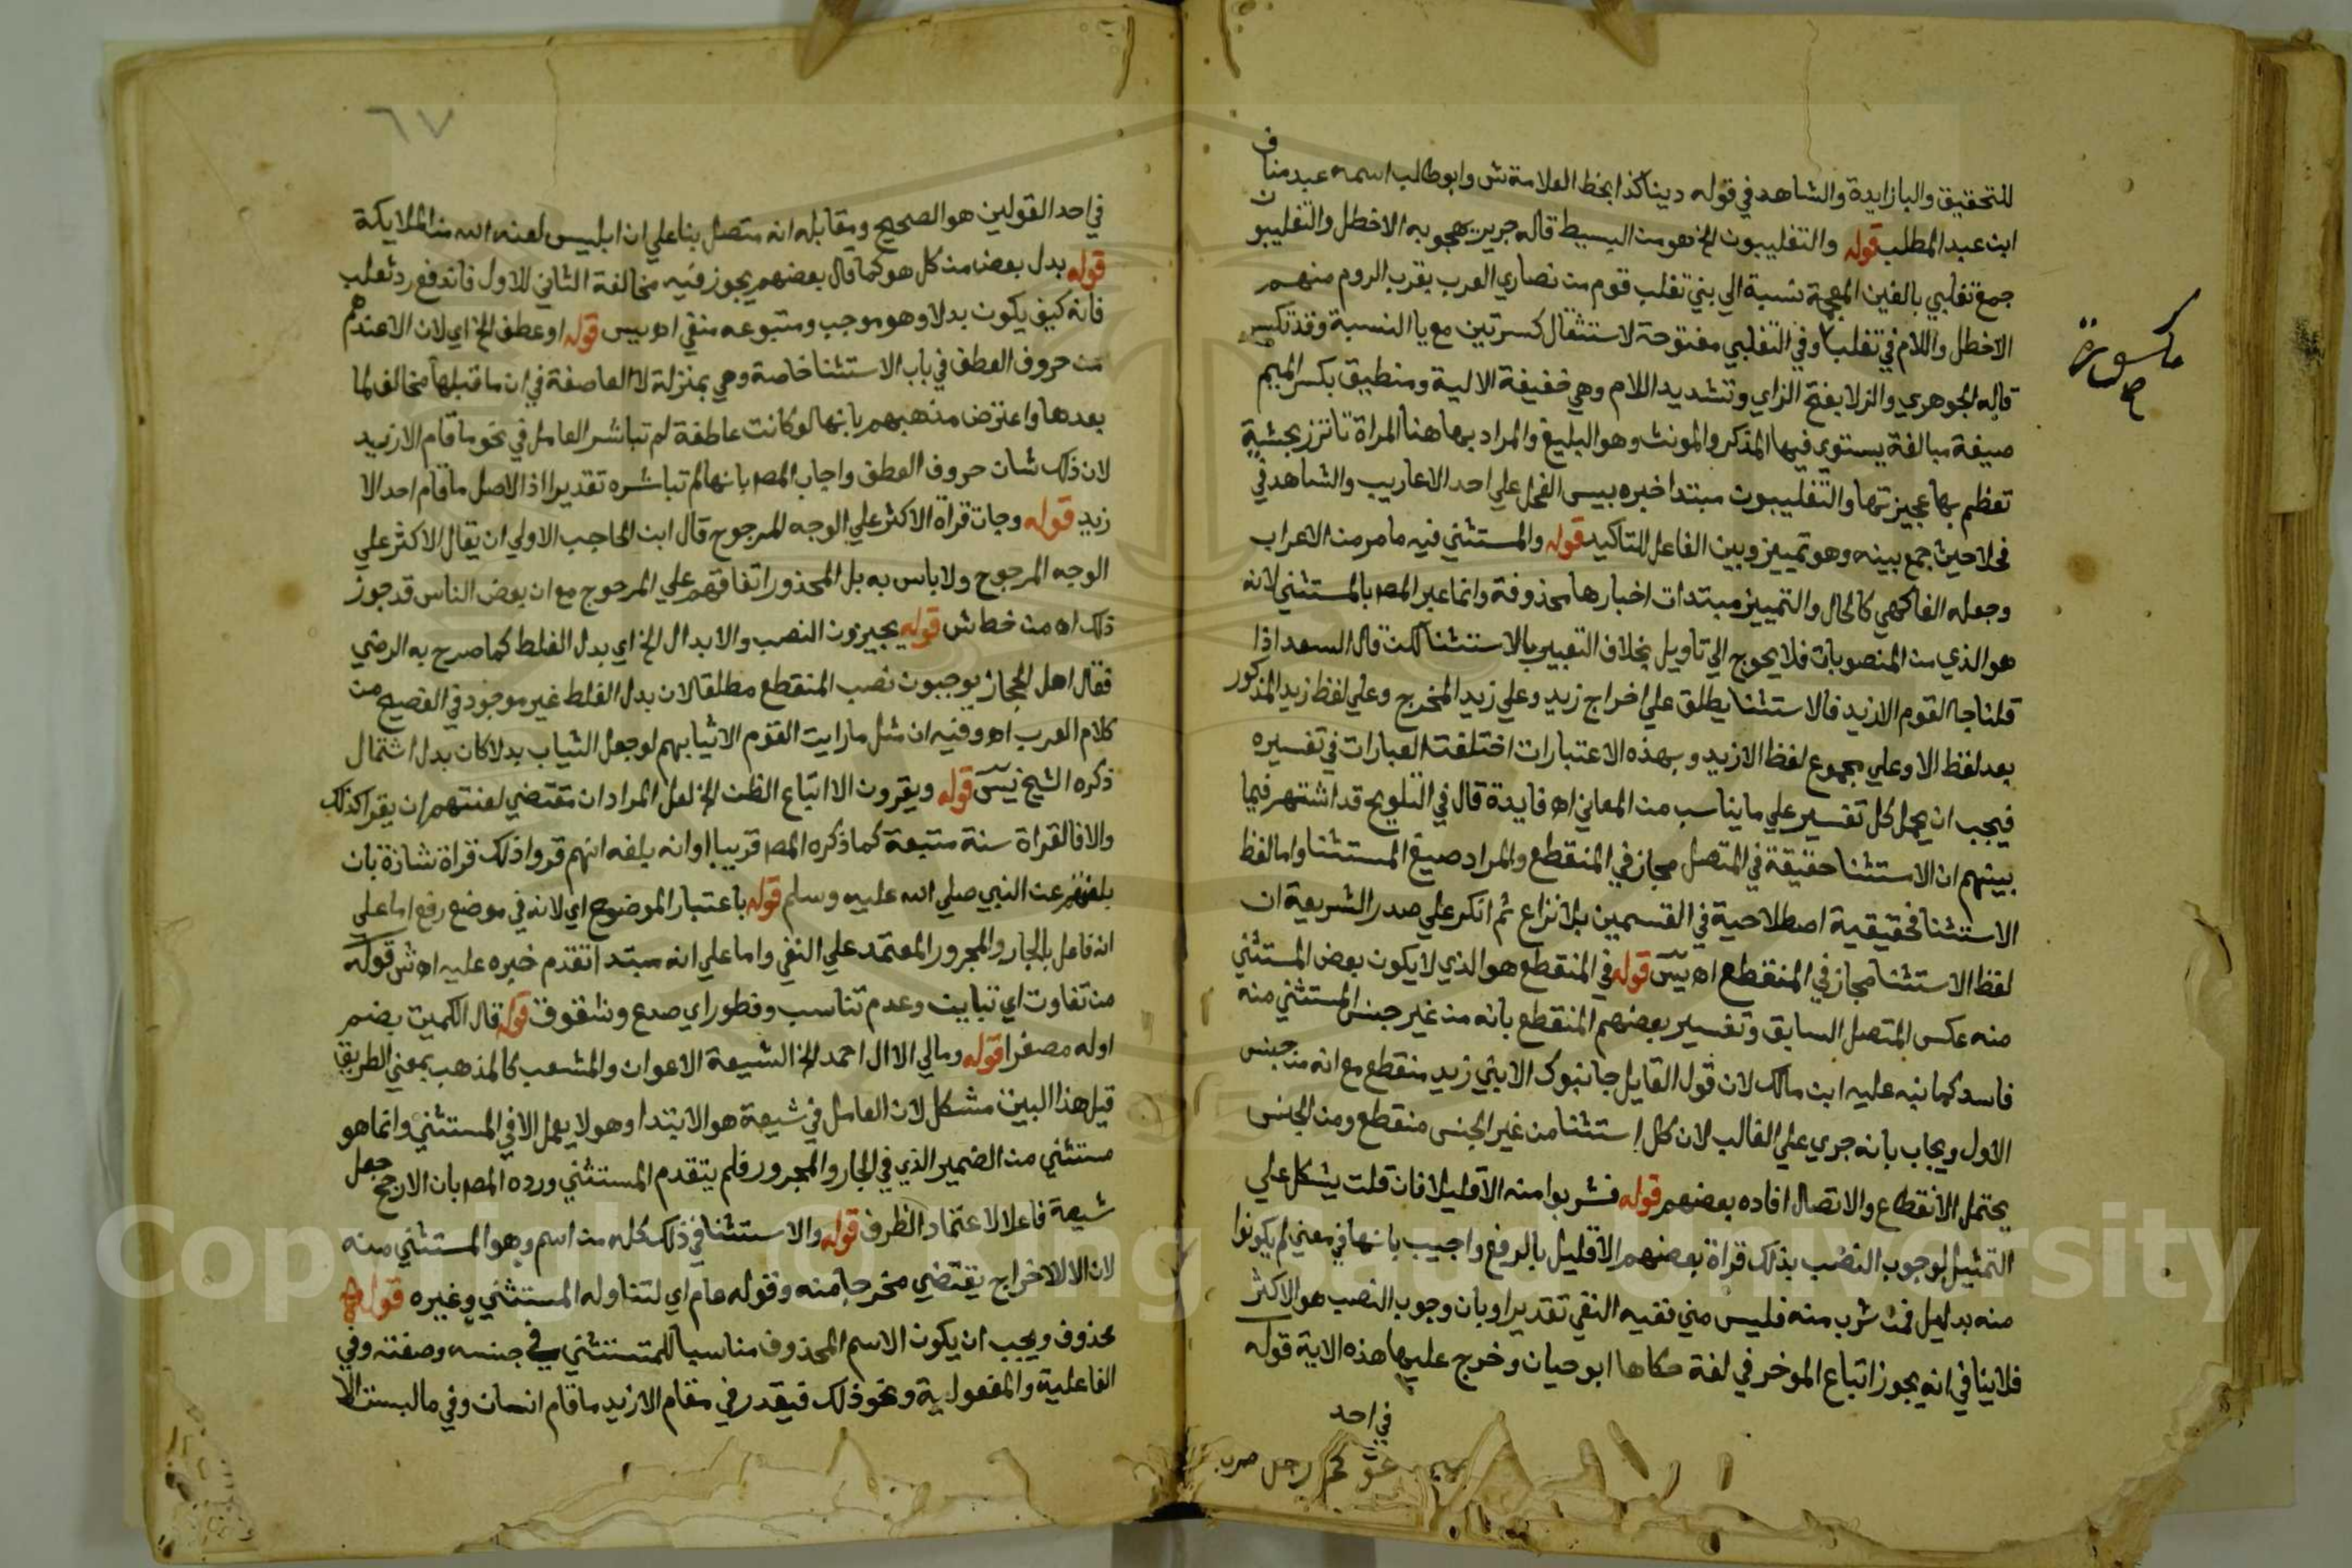 للتحقيق والبا زايدة والشاهد في قوله دينا كذا بخط العلامة ش وابو طالب اسمه عبد مناف
ابن عبد المطلب قوله والتغليبيون الخ هو من البسيط قاله جرير يهجو به الاخطل والتغليبون
جمع تغلبي بالغين المعجمة نسبة الي بني تغلب قوم من نصاري العرب بقرب الروم منهم
الاخطل واللام في تغلب وفي التغلبي مفتوحة لاستثقال كسرتين مع يا النسبة وقد تكسر
مكسورة
قاله الجوهري والزلا بفتح الزاي وتشديد اللام وهي خفيفة الالية ومنطيق بكسر الميم
صيغة مبالغة يستوي فيها المذكر والمونث وهو البليغ والمراد بها هنا المراة تاتزر بحشية
تعظم بها عجيزتها والتغليبيون مبتدا خبره بيس الفحل علي احد الاعاريب والشاهد في
فحلا حيث جمع بينه وهو تمييز وبين الفاعل للتاكيد قوله والمستثني فيه ما مر من الاعراب
وجعله الفاكهي كالحال والتمييز مبتدات اخبارها محذوفة وانما عبر المص بالمستثني لانه
هو الذي من المنصوبات فلا يحوج الي تاويل بخلاف التعبير بالاستثنا لكن قال السعد اذا
قلنا جا القوم الا زيد فالاستثنا يطلق علي اخراج زيد وعلي زيد المخرج وعلي لفظ زيد المذكور
بعد لفظ الا وعلي مجموع لفظ الا زيد وبهذه الاعتبارات اختلفت العبارات في تفسيره
فيجب ان يحمل كل تفسير علي ما يناسب من المعاني اه فايدة قال في التلويح قد اشتهر فيما
بينهم ان الاستثنا حقيقة في المتصل مجاز في المنقطع والمراد صيغ المستثنا واما لفظ
الاستثنا فحقيقية اصطلاحية في القسمين بلا نزاع ثم انكر علي صدر الشريعة ان
لفظ الاستثنا مجاز في المنقطع اه يس قوله في المنقطع هو الذي لا يكون بعض المستثني
منه عكس المتصل السابق وتفسير بعضهم المنقطع بانه من غير جنس المستثني منه
فاسد كما نبه عليه ابن مالك لان قول القايل جا بنوك الا بني زيد منقطع مع انه من جنس
الاول ويجاب بانه جري علي الغالب لان كل استثنا من غير الجنس منقطع ومن الجنس
يحتمل الانقطاع والاتصال افاده بعضهم قوله فشربوا منه الا قليلا فان قلت يشكل علي
التمثيل لوجوب النصب بذلك قراة بعضهم الا قليل بالرفع واجيب بانها في معني لم يكونوا
منه بدليل فمن شرب منه فليس مني ففيه النفي تقديرا وبان وجوب النصب هو الاكثر
فلا ينافي انه يجوز اتباع الموخر في لغة حكاها ابو حيان وخرج عليها هذه الاية قوله
في احد
٦٧
في احد القولين هو الصحيح ومقابله انه متصل بنا علي ان ابليس لعنه الله من الملايكة
قوله بدل بعض من كل هو كما قال بعضهم يجوز فيه مخالفة الثاني للاول فاندفع رد ثعلب
فانه كيف يكون بدلا وهو موجب ومتبوعه منفي اه يس قوله او عطف الخ اي لان الا عندهم
من حروف العطف في باب الاستثنا خاصة وهي بمنزلة لا العاصفة في ان ما قبلها مخالف لما
بعدها واعترض مذهبهم بانها لو كانت عاطفة لم تباشر العامل في نحو ما قام الا زيد
لان ذلك شان حروف العطف واجاب المص بانها لم تباشره تقديرا اذ الاصل ما قام احد الا
زيد قوله وجات قراة الاكثر علي الوجه المرجوح قال ابن الحاجب الاولي ان يقال الاكثر علي
الوجه المرجوح ولا باس به بل المحذور اتفاقهم علي المرجوح مع ان بعض الناس قد جوز
ذلك اه من خط ش قوله يجيزون النصب والابدال الخ اي بدل الغلط كما صرح به الرضي
فقال اهل الحجاز يوجبون نصب المنقطع مطلقا لان بدل الغلط غير موجود في الفصيح من
كلام العرب اه وفيه ان مثل ما رايت القوم الا ثيابهم لو جعل الثياب بدلا كان بدل اشتمال
ذكره الشيخ يس قوله ويقرون الا اتباع الظن الخ لعل المراد ان مقتضي لغتهم ان يقرا كذلك
والا فالقراة سنة متبعة كما ذكره المص قريبا او انه بلغه انهم قروا ذلك قراة شاذة بان
بلغتهم عن النبي صلي الله عليه وسلم قوله باعتبار الموضوع اي لانه في موضع رفع اما علي
انه فاعل بالجار والمجرور المعتمد علي النفي واما علي انه مبتدا تقدم خبره عليه اه ش قوله
من تفاوت اي تباين وعدم تناسب وفطور اي صدع وشقوق قوله قال الكميت بضم
اوله مصغرا قوله ومالي الا ال احمد الخ الشيعة الاعوان والمشعب كالمذهب بمعني الطريق
قيل هذا البيت مشكل لان العامل في شيعة هو الابتدا وهو لا يعمل الا في المستثني وانما هو
مستثني من الضمير الذي في الجار والمجرور فلم يتقدم المستثني ورده المص بان الارجح جعل
شيعة فاعلا لاعتماد الظرف قوله والاستثنا في ذلك كله من اسم وهو المستثني منه
لان الا للاخراج يقتضي مخرجا منه وقوله عام اي لتناوله المستثني وغيره قوله
محذوف ويجب ان يكون الاسم المحذوف مناسبا للمستثني في جنسه وصفته وفي
الفاعلية والمفعولية ونحو ذلك فيقدر في مقام الا زيد ما قام انسان وفي ما لبست الا